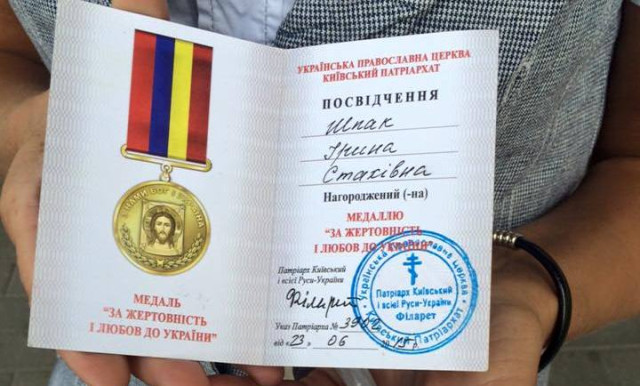 З НАМИ БОГ І УКРАЇНА
МЕДАЛЬ
"ЗА ЖЕРТОВНІСТЬ
І ЛЮБОВ ДО УКРАЇНИ"
УКРАЇНСЬКА ПРАВОСЛАВНА ЦЕРКВА
КИЇВСЬКИЙ ПАТРІАРХАТ
ПОСВІДЧЕННЯ
Шпак
Ірина
Стахівна
Нагороджений (-на)
МЕДАЛЛЮ
"ЗА ЖЕРТОВНІСТЬ
І ЛЮБОВ ДО УКРАЇНИ"
Патріарх Київський
і всієї Руси-України
Філарет
Указ Патріарха №
від «23» 06 15 р.
Українська Православна церква
Київський Патріархат
Патріарх Київський
і всієї Руси-України
Філарет